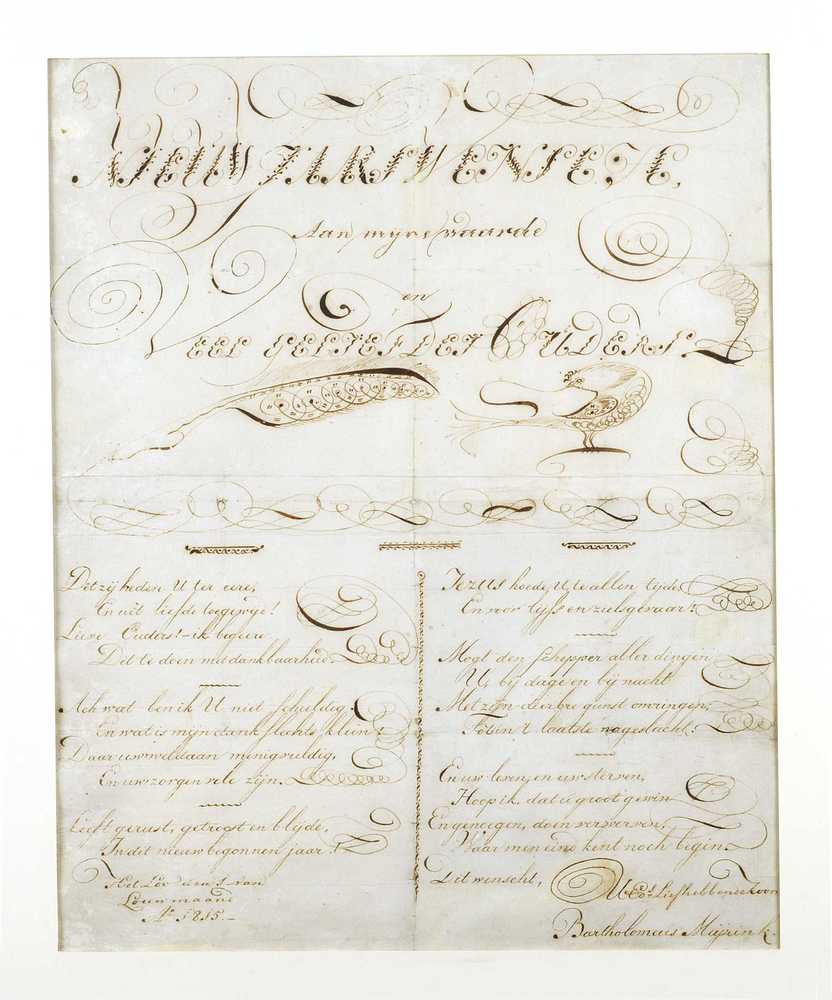 NIEUW JAARSWENSCHE,
Aan mijne waarde
en
VEEL GELIEFDE OUDERS.
Dit zij heden U ter eere,
En uit liefde toegewyd!
Lieve Ouders! - ik begeere
Dit te doen met dankbaarheid.
Ach wat ben ik U niet schuldig.
En wat is mijn dank slechts klein?
Daar uw weldaan menigvuldig,
En uw zorgen vele zijn.
Leeft gerust, getroost en blijde,
In dit nieuw begonnen jaar!
Jezus hoede U te allen tijde
En voor lyfs en zielsgevaar!
Mogt den Schepper aller dingen
U, bij dage en bij nacht
Met zijn dierbre gunst omringen,
Tot in 't laatste nageslacht!
En uw leven, en uw sterven,
Hoop ik, dat u groot gewin
En genoegen, doen verwerven,
Waar men einde kent noch begin.
Dit wenscht,
UEds Liefhebbende Zoon
Bartholomeus Meijrink.
den 1 van
Louwmaand
Ao 1815.-